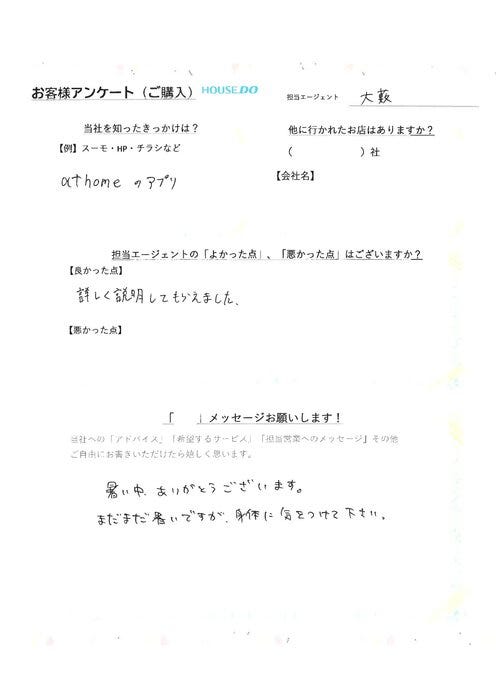 お客様アンケート（ご購入） HOUSE DO
担当エージェント 大藪
当社を知ったきっかけは？
【例】スーモ・HP・チラシなど
athome のアプリ
他に行かれたお店はありますか？
（ ）社
【会社名】
担当エージェントの「よかった点」、「悪かった点」はございますか？
【良かった点】
詳しく説明してもらえました、
【悪かった点】
「 」メッセージお願いします！
当社への「アドバイス」「希望するサービス」「担当営業へのメッセージ」その他
ご自由にお書きいただけたら嬉しく思います。
暑い中、ありがとうございます。
まだまだ暑いですが、身体に気をつけて下さい。